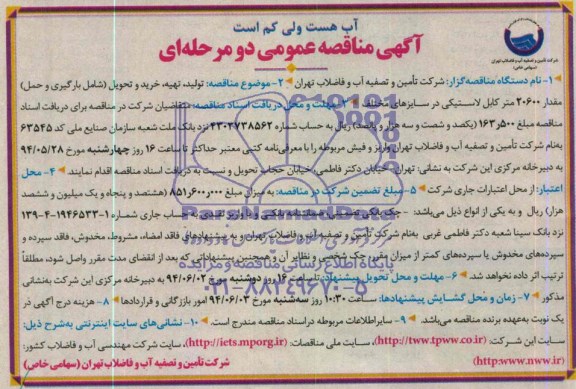 آب هست ولی کم است
آگهی مناقصه عمومی دو مرحله‌ای
شرکت تأمین و تصفیه آب و فاضلاب تهران
(سهامی خاص)
۱- نام دستگاه مناقصه‌گزار: شرکت تأمین و تصفیه آب و فاضلاب تهران ۲- موضوع مناقصه: تولید، تهیه، خرید و تحویل (شامل بارگیری و حمل)
مقدار ۲۰۶۰۰ متر کابل لاستیکی در سایزهای مختلف ۳- مهلت و محل دریافت اسناد مناقصه: متقاضیان شرکت در مناقصه برای دریافت اسناد
مناقصه مبلغ ۱۶۳٫۵۰۰ (یکصد و شصت و سه هزار و پانصد) ریال به حساب شماره ۴۳۰۲۷۳۸۵۶۲ نزد بانک ملت شعبه سازمان صنایع ملی کد ۶۳۵۴۵
به‌نام شرکت تأمین و تصفیه آب و فاضلاب تهران واریز و فیش مربوطه را با معرفی‌نامه کتبی معتبر حداکثر تا ساعت ۱۶ روز چهارشنبه مورخ ۹۴/۰۵/۲۸
به دبیرخانه مرکزی این شرکت به نشانی: تهران- خیابان دکتر فاطمی- خیابان حجاب تحویل و نسبت به دریافت اسناد مناقصه اقدام نمایند ۴- محل
اعتبار: از محل اعتبارات جاری شرکت ۵- مبلغ تضمین شرکت در مناقصه: به میزان مبلغ ۸۵۱٫۶۰۰٫۰۰۰ (هشتصد و پنجاه و یک میلیون و ششصد
هزار) ریال و به یکی از انواع ذیل می‌باشد - چک بانکی تضمینی، ضمانتنامه بانکی و یا واریز نقدی به حساب جاری شماره ۱-۱۹۴۶۵۳۳-۴-۱۳۹
نزد بانک سینا شعبه دکتر فاطمی غربی به‌نام شرکت تأمین و تصفیه آب و فاضلاب تهران و به پیشنهادهای فاقد امضاء، مشروط، مخدوش، فاقد سپرده و
سپرده‌های مخدوش یا سپرده‌های کمتر از میزان مقرر، چک شخصی و نظایر آن و همچنین پیشنهاداتی که بعد از انقضای مدت مقرر واصل شود، مطلقاً
ترتیب اثر داده نخواهد شد. ۶- مهلت و محل تحویل پیشنهاد: تا ساعت ۱۶ روز دوشنبه مورخ ۹۴/۰۶/۰۲ به دبیرخانه مرکزی این شرکت به‌نشانی
مذکور ۷- زمان و محل گشایش پیشنهادها: ساعت ۱۰:۳۰ روز سه‌شنبه مورخ ۹۴/۰۶/۰۳ امور بازرگانی و قراردادها ۸- هزینه درج آگهی در
یک نوبت به‌عهده برنده مناقصه می‌باشد. ۹- سایر اطلاعات مربوطه در اسناد مناقصه مندرج است. ۱۰- نشانی‌های سایت اینترنتی به‌شرح ذیل:
سایت این شرکت: (http://tww.tpww.co.ir)، سایت ملی مناقصات: (http://iets.mporg.ir)، سایت شرکت مهندسی آب و فاضلاب کشور:
(http:www.nww.ir)
شرکت تأمین و تصفیه آب و فاضلاب تهران (سهامی خاص)
پایگاه اطلاع رسانی مناقصه و مزایده
۰۲۱-۸۸۳۴۹۶۷۰-۵